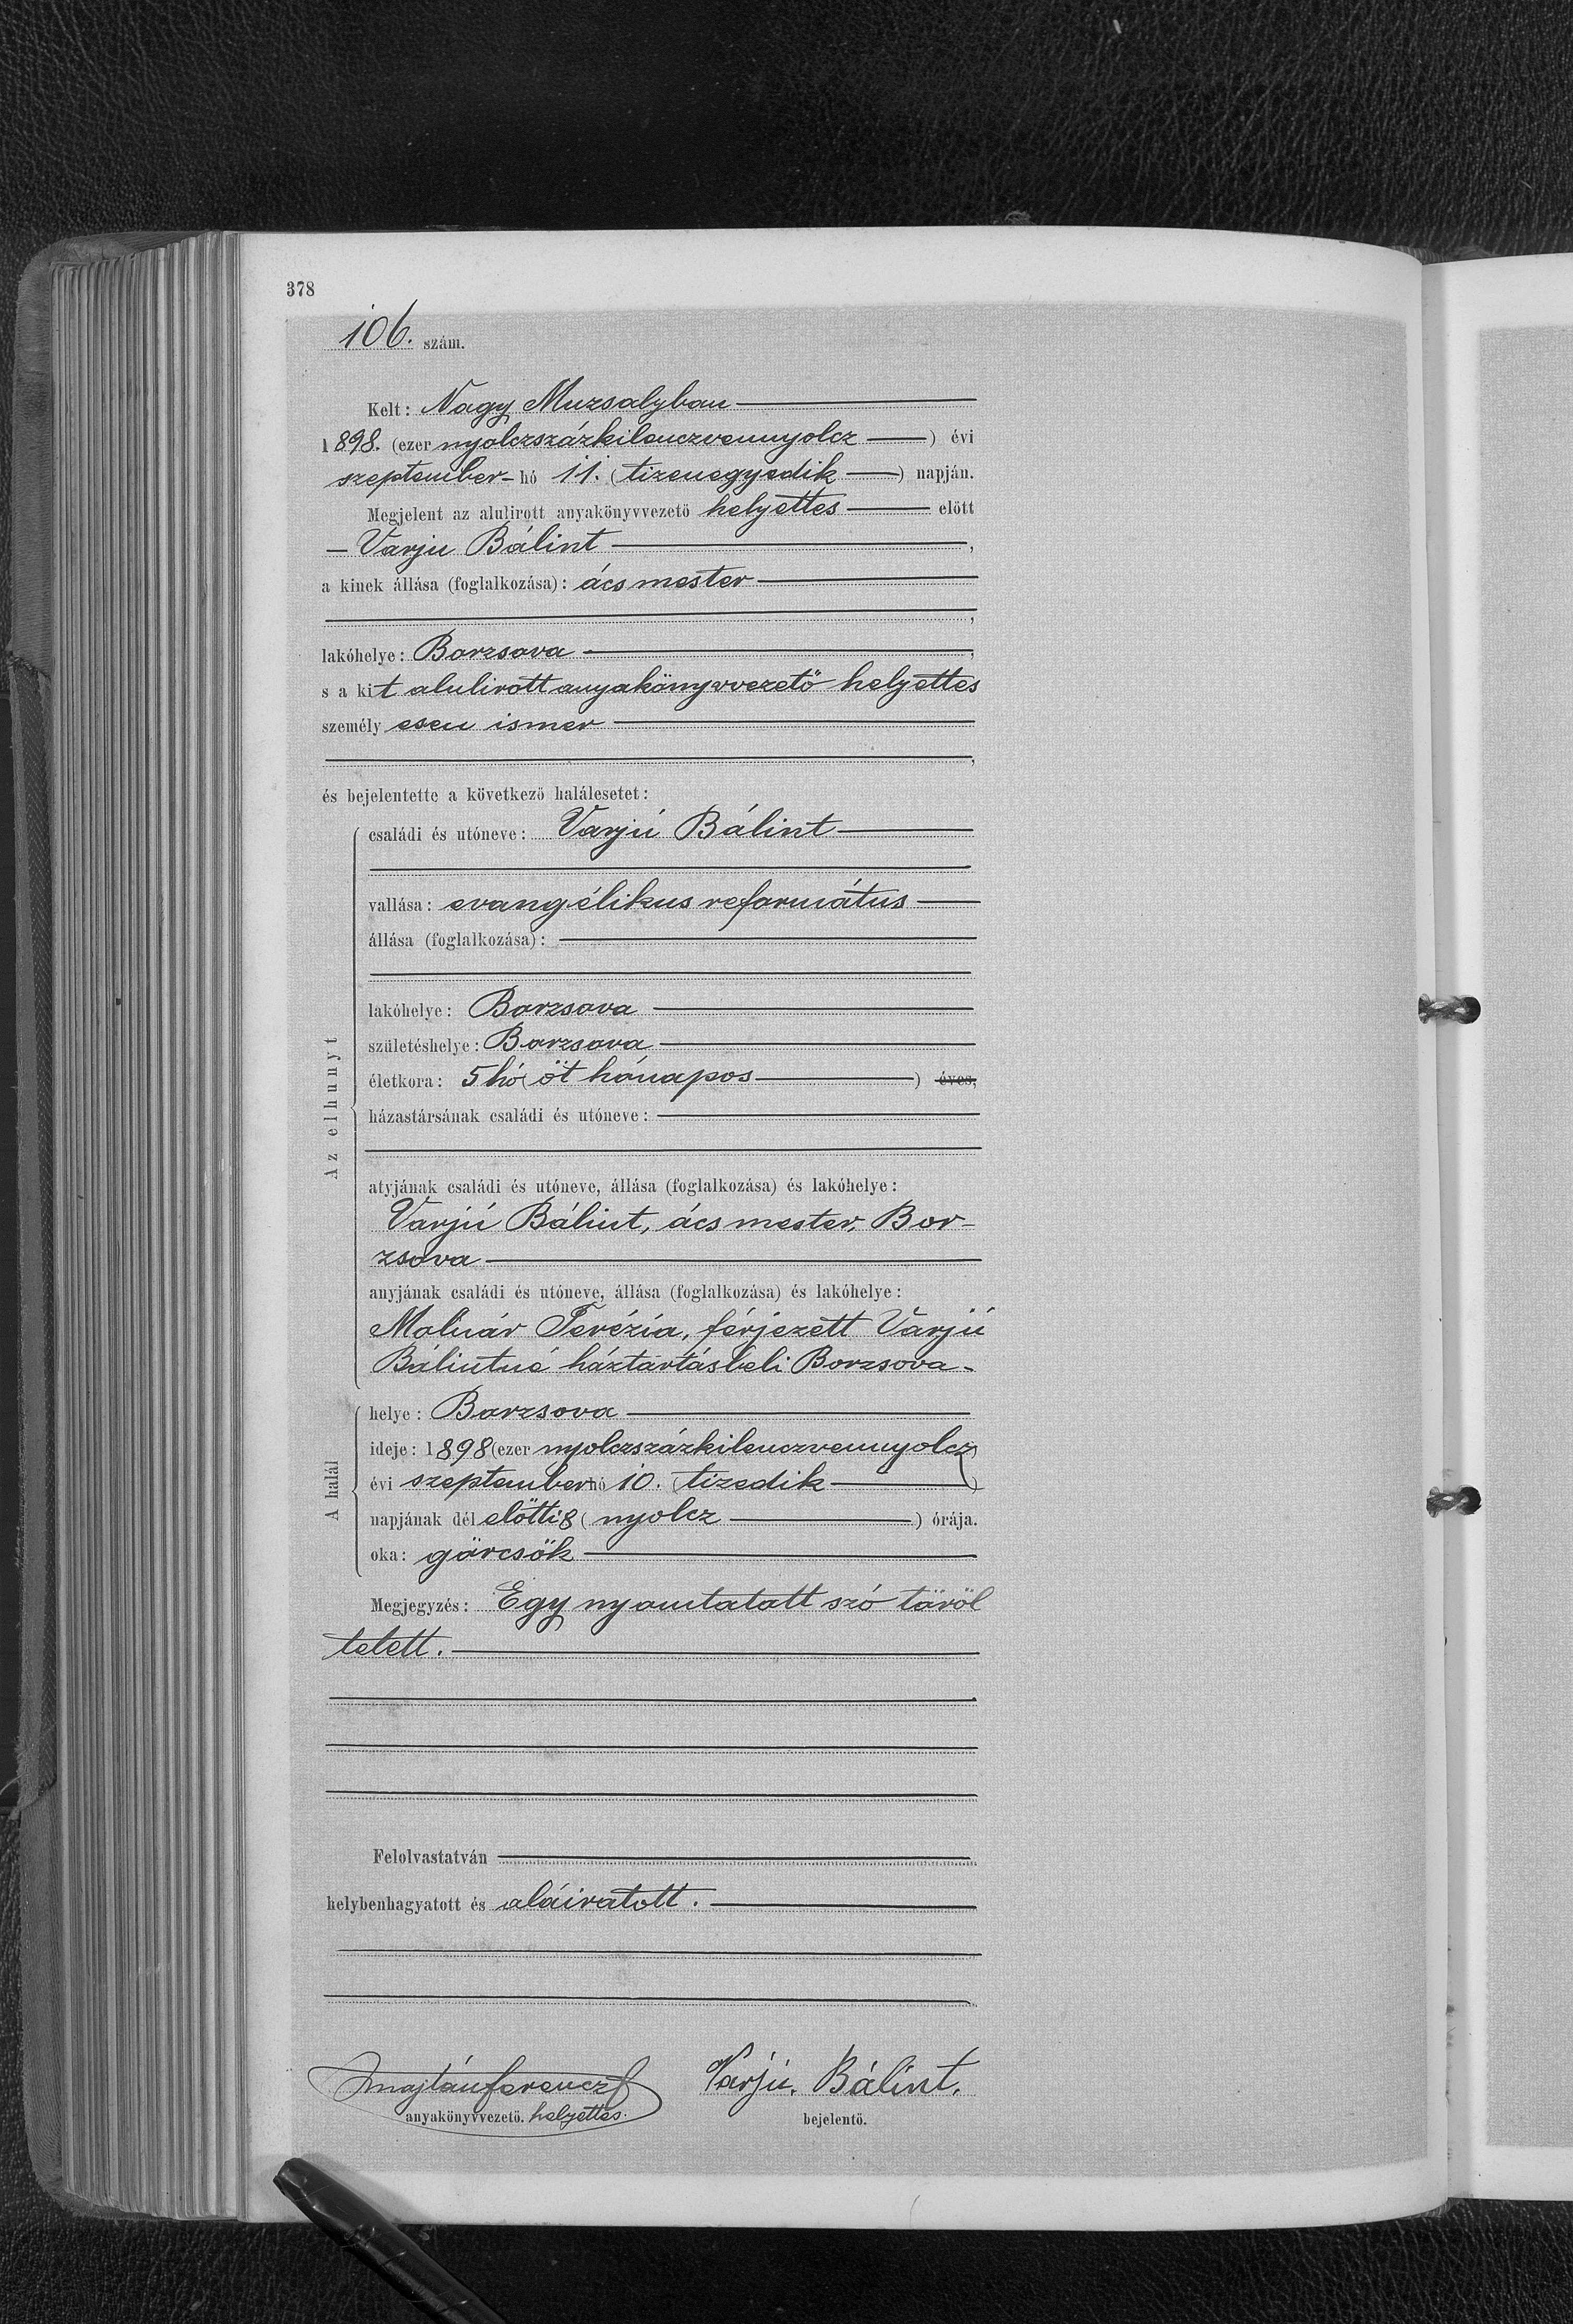 378
106. szám.
Kelt: Nagy Muzsalyban
1898. (ezer nyolczszázkilenczvennyolcz) évi
szeptember - hó 11. (tizenegyedik) napján.
Megjelent az alulirott anyakönyvvezető helyettes előtt
Varju Bálint,
a kinek állása (foglalkozása): ács mester
lakóhelye: Borzsova,
s a kit alulirott anyakönyvvezető helyettes
személyesen ismer,
és bejelentette a következő halálesetet:
Az elhunyt
családi és utóneve: Varjú Bálint
vallása: evangélikus református
állása (foglalkozása):
lakóhelye: Borzsova
születéshelye: Borzsova
életkora: 5 hó (öt hónapos) éves,
házastársának családi és utóneve:
atyjának családi és utóneve, állása (foglalkozása) és lakóhelye:
Varjú Bálint, ács mester, Bor-
zsova
anyjának családi és utóneve, állása (foglalkozása) és lakóhelye:
Molnár Terézia, férjezett Varjú
Bálintné háztartásbeli Borzsova -
A halál
helye: Borzsova
ideje: 1898 (ezer nyolczszázkilenczvennyolcz)
évi szeptember hó 10. (tizedik)
napjának dél előtti 8 (nyolcz) órája.
oka: görcsök
Megjegyzés: Egy nyomtatott szó töröl
tetett.
Felolvastatván
helybenhagyatott és aláiratott.
Majlán Ferencz Varjú. Bálint.
anyakönyvvezető. helyettes. bejelentő.